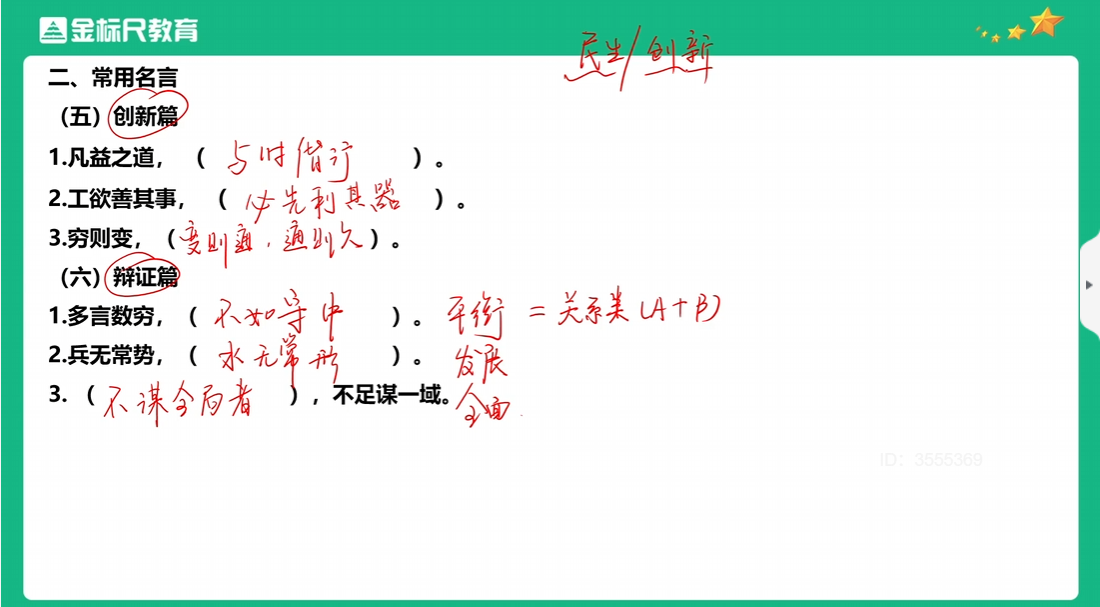 金标尺教育
民生/创新
二、常用名言
（五）创新篇
1.凡益之道，（ 与时偕行 ）。
2.工欲善其事，（ 必先利其器 ）。
3.穷则变，（变则通，通则久）。
（六）辩证篇
1.多言数穷，（ 不如守中 ）。平衡 = 关系类（A+B）
2.兵无常势，（ 水无常形 ）。发展
3.（不谋全局者 ），不足谋一域。全面
ID：3555369